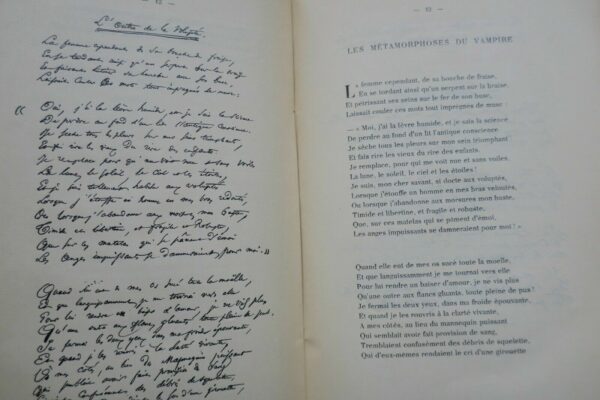 L'Outre de la Volupté
La femme cependant de sa bouche de fraise,
En se tordant ainsi qu'un serpent sur la
Laissait couler ces mots tout imprégnés de musc :
« Oui, j'ai la lèvre humide, et je sais la science
De perdre au fond d'un lit l'antique conscience.
Je sèche tous les pleurs sur mes seins triomphants,
Et fais rire les vieux du rire des enfants.
Je remplace pour qui me voit nue et sans voile
La lune, le soleil, le ciel et les étoiles,
Lorsque j'étouffe un homme en mes bras
Ou lorsque j'abandonne aux morsures mon buste,
Timide et libertine, et fragile et robuste,
Que sur ces matelas qui se pâment d'émoi
Les Anges impuissants se damneraient pour moi. »
Quand elle eut de mes os sucé toute la moelle,
Et que languissamment je me tournai vers elle
Pour lui rendre un baiser d'amour, je ne vis plus
Qu'une outre aux flancs gluants, toute pleine de pus.
Je fermai les deux yeux dans ma froide épouvante,
Et quand je les rouvris à la clarté vivante,
LES MÉTAMORPHOSES DU VAMPIRE
La femme cependant, de sa bouche de fraise,
En se tordant ainsi qu'un serpent sur la braise,
Et pétrissant ses seins sur le fer de son busc,
Laissait couler ces mots tout imprégnés de musc :
— « Moi, j'ai la lèvre humide, et je sais la science
De perdre au fond d'un lit l'antique conscience.
Je sèche tous les pleurs sur mes seins triomphants
Et fais rire les vieux du rire des enfants.
Je remplace, pour qui me voit nue et sans voiles,
La lune, le soleil, le ciel et les étoiles !
Je suis, mon cher savant, si docte aux voluptés,
Lorsque j'étouffe un homme en mes bras veloutés,
Ou lorsque j'abandonne aux morsures mon buste,
Timide et libertine, et fragile et robuste,
Que, sur ces matelas qui se pâment d'émoi,
Les anges impuissants se damneraient pour moi ! »
Quand elle eut de mes os sucé toute la moelle,
Et que languissamment je me tournai vers elle
Pour lui rendre un baiser d'amour, je ne vis plus
Qu'une outre aux flancs gluants, toute pleine de pus !
Je fermai les deux yeux, dans ma froide épouvante,
Et quand je les rouvris à la clarté vivante,
A mes côtés, au lieu du mannequin puissant
Qui semblait avoir fait provision de sang,
Tremblaient confusément des débris de squelette,
Qui d'eux-mêmes rendaient le cri d'une girouette